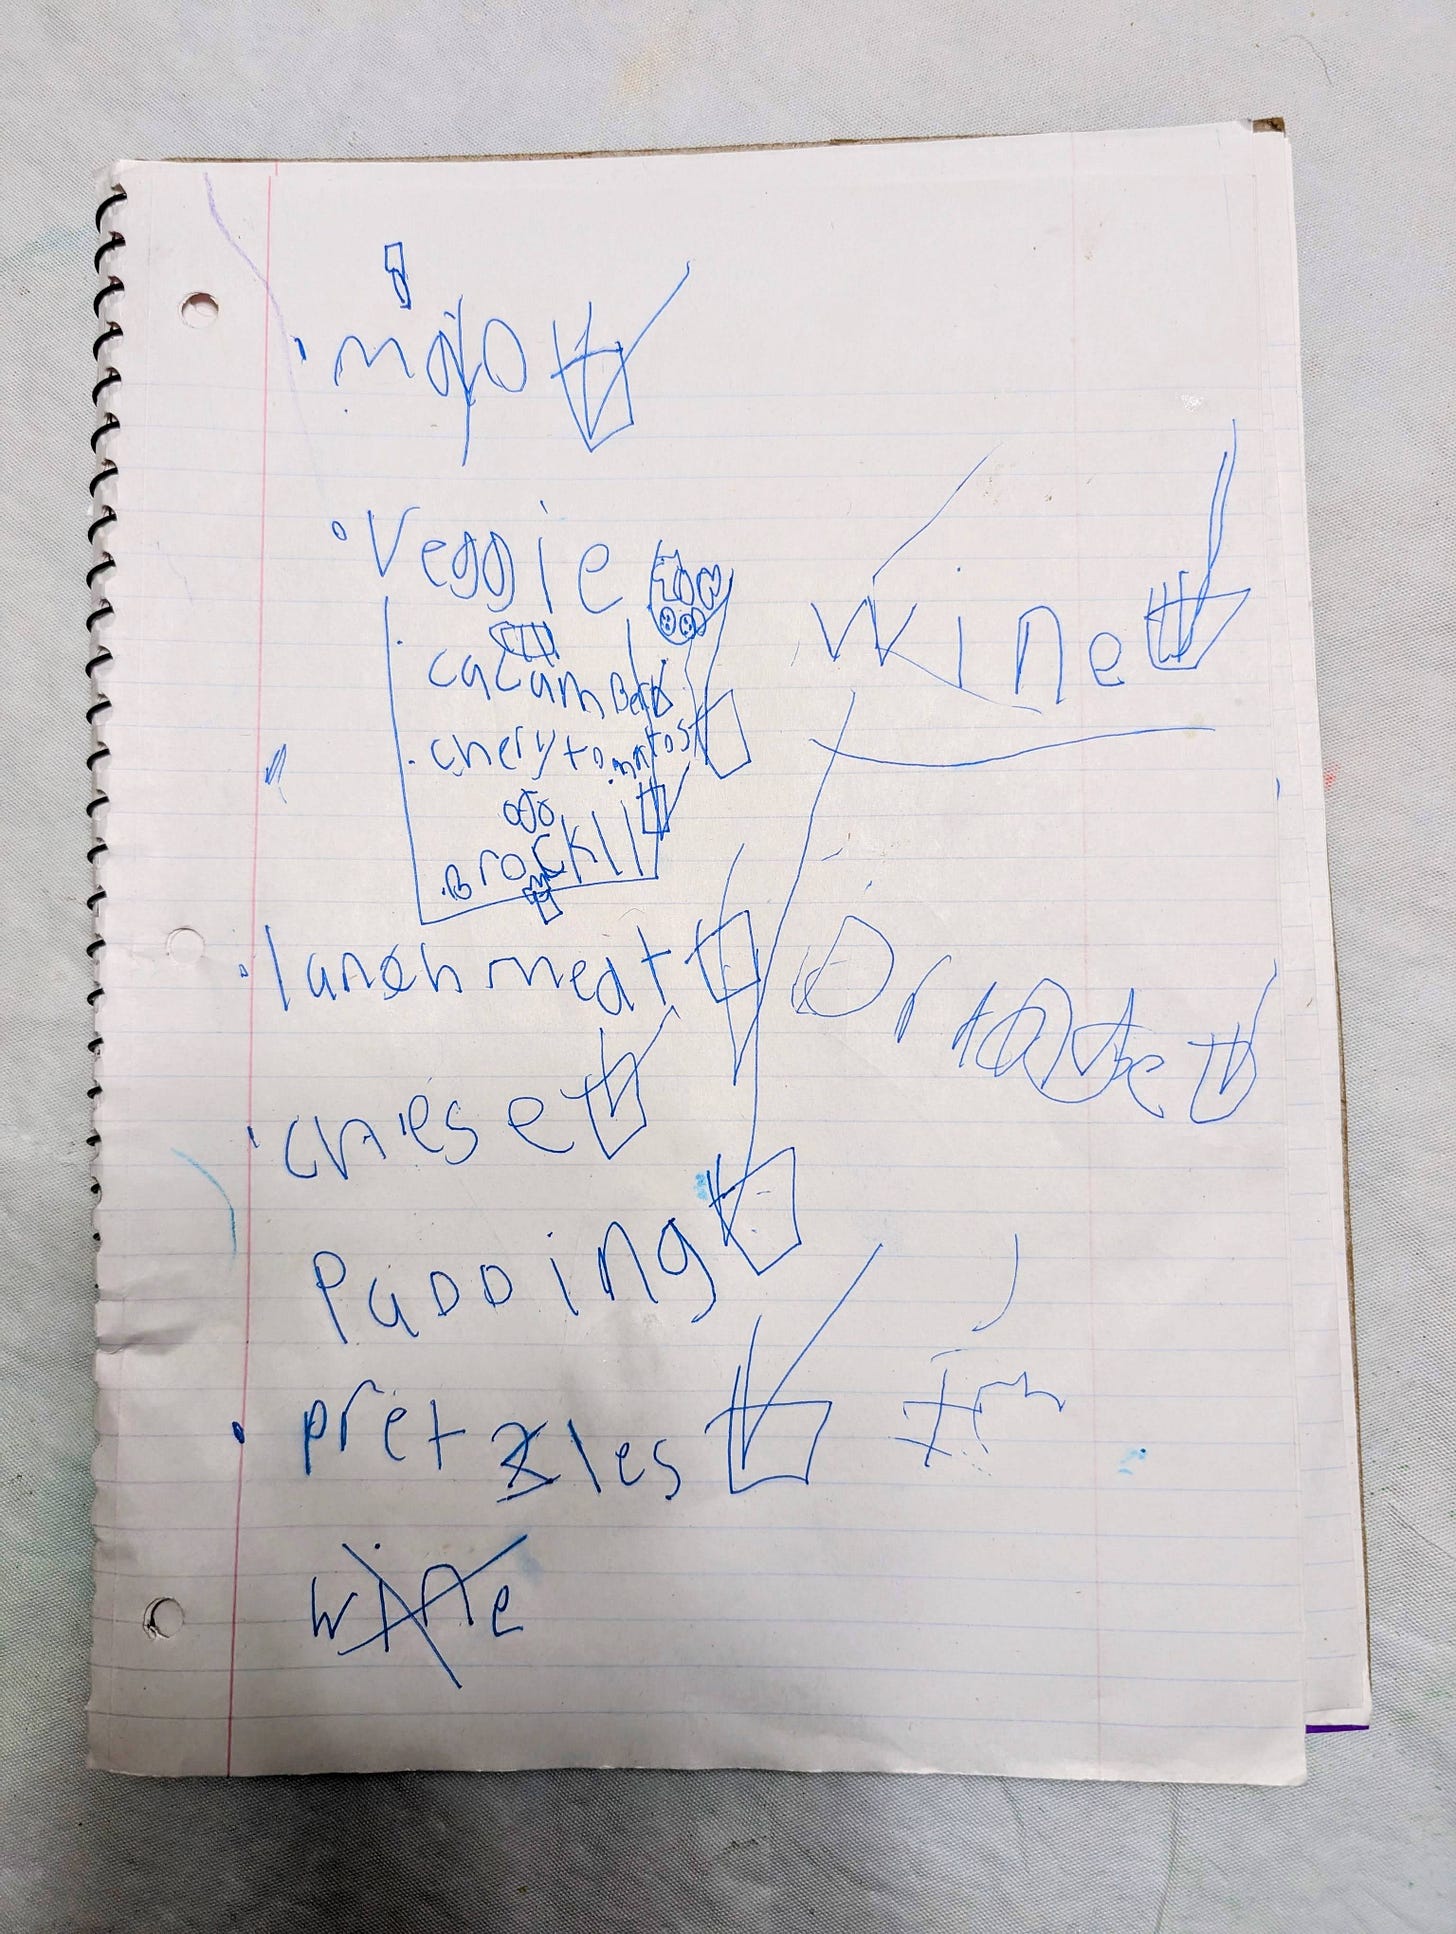 mayo
Veggie
cacamber
chery tomatos
Brockli
lunch meat
cheese
Padding
pretzles
wine
wine